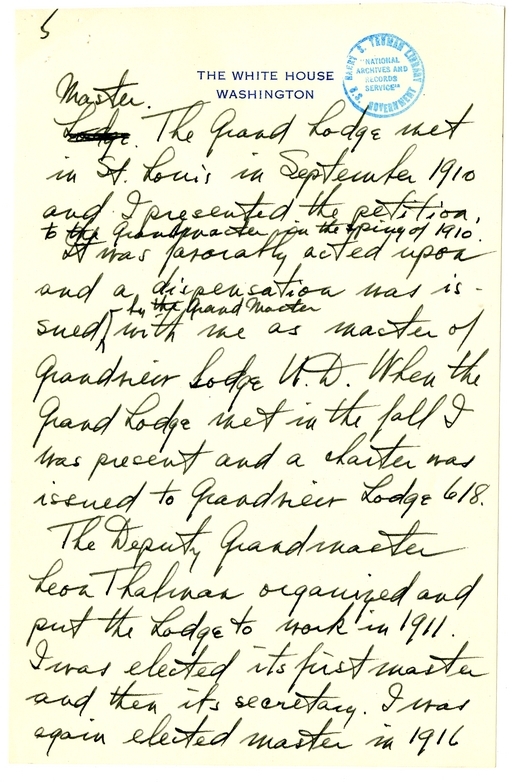 5
THE WHITE HOUSE
WASHINGTON
HARRY S. TRUMAN LIBRARY
"NATIONAL
ARCHIVES AND
RECORDS
SERVICE"
U.S. GOVERNMENT
Master.
Lodge. The Grand Lodge met
in St. Louis in September 1910
and I presented the petition,
to the Grandmaster in the spring of 1910.
It was favorably acted upon
and a dispensation was is-
by the Grand Master
sued, with me as master of
Grandview Lodge U.D. When the
Grand Lodge met in the fall I
was present and a charter was
issued to Grandview Lodge 618.
The Deputy Grandmaster
Leon Thalman organized and
put the Lodge to work in 1911.
I was elected its first master
and then its secretary. I was
again elected master in 1916